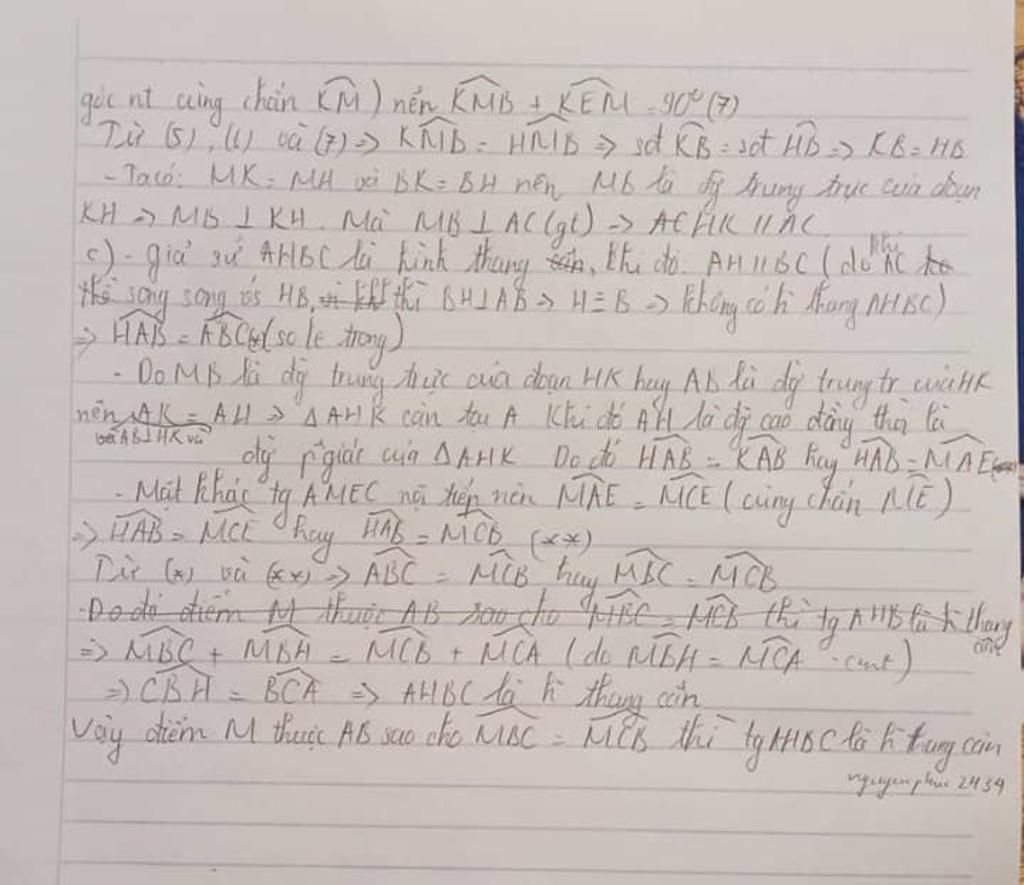 góc nt cùng chắn KM) nên KMB + KEM = 90° (7)
Từ (5), (6) và (7) => KMB = HMB => sđ KB = sđ HB => KB = HB
- Ta có: MK = MH và BK = BH nên MB là đg trung trực của đoạn
KH => MB ⊥ KH. Mà MB ⊥ AC (gt) => HK // AC
c) - giả sử AHBC là hình thang, khi đó AH // BC (do AC
thể song song vs HB, thì BH ⊥ AB => H ≡ B => không có h thang AHBC)
=> HAB = ABC (*) (so le trong)
- Do MB là đg trung trực của đoạn HK hay AB là đg trung tr của HK
nên AK = AH => Δ AHK cân tại A Khi đó AH là đg cao đồng thời là
và AB ⊥ HK và
đg p.giác của Δ AHK Do đó HAB = KAB hay HAB = MAE
- Mặt khác tg AMEC nội tiếp nên MAE = MCE (cùng chắn ME)
=> HAB = MCE hay HAB = MCB (**)
Từ (*) và (**) => ABC = MCB hay MBC = MCB
- Do đó điểm M thuộc AB sao cho MBC = MCB thì tg AHB là h thang
=> MBC + MBH = MCB + MCA (do MBH = MCA - cmt)
=> CBH = BCA => AHBC là h thang cân
Vậy điểm M thuộc AB sao cho MBC = MCB thì tg AHBC là h thang cân
nguyenphuc2434